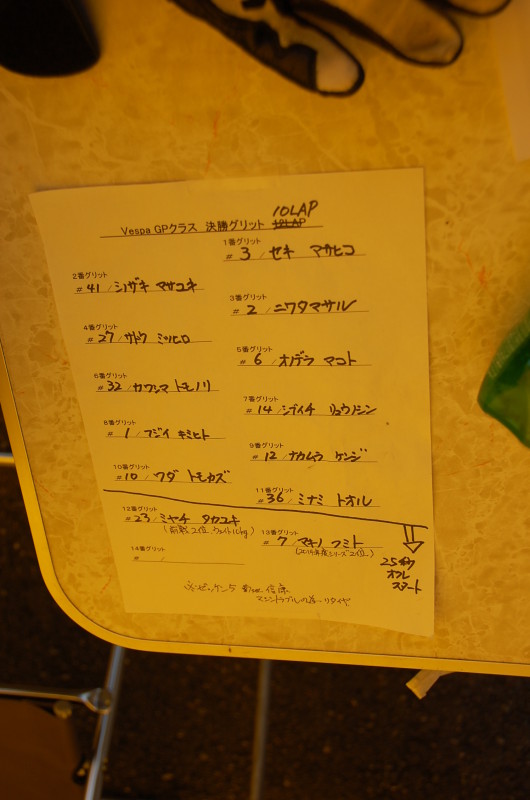 10LAP
Vespa GPクラス 決勝グリット 12LAP
1番グリット
# 3 / セキ マサヒコ
2番グリット
# 41 / シノザキ マサユキ
3番グリット
# 2 / ニワタマサル
4番グリット
# 27 / サトウ ミツヒロ
5番グリット
# 6 / オノデラ マコト
6番グリット
# 32 / カワシマ トモノリ
7番グリット
# 14 / シブイチ リュウノシン
8番グリット
# 1 / フジイ キミヒト
9番グリット
# 12 / ナカムラ ケンジ
10番グリット
# 10 / ワダ トモカズ
11番グリット
# 36 / ミナミ トオル
12番グリット
# 23 / ミヤチ タカユキ
(前戦2位、ウェイト10kg)
13番グリット
# 7 / マキノ フミト
(2014年度シリーズ2位)
14番グリット
# /
25秒
オクレ
スタート
※ゼッケン5
マシントラブルの為、リタイヤ